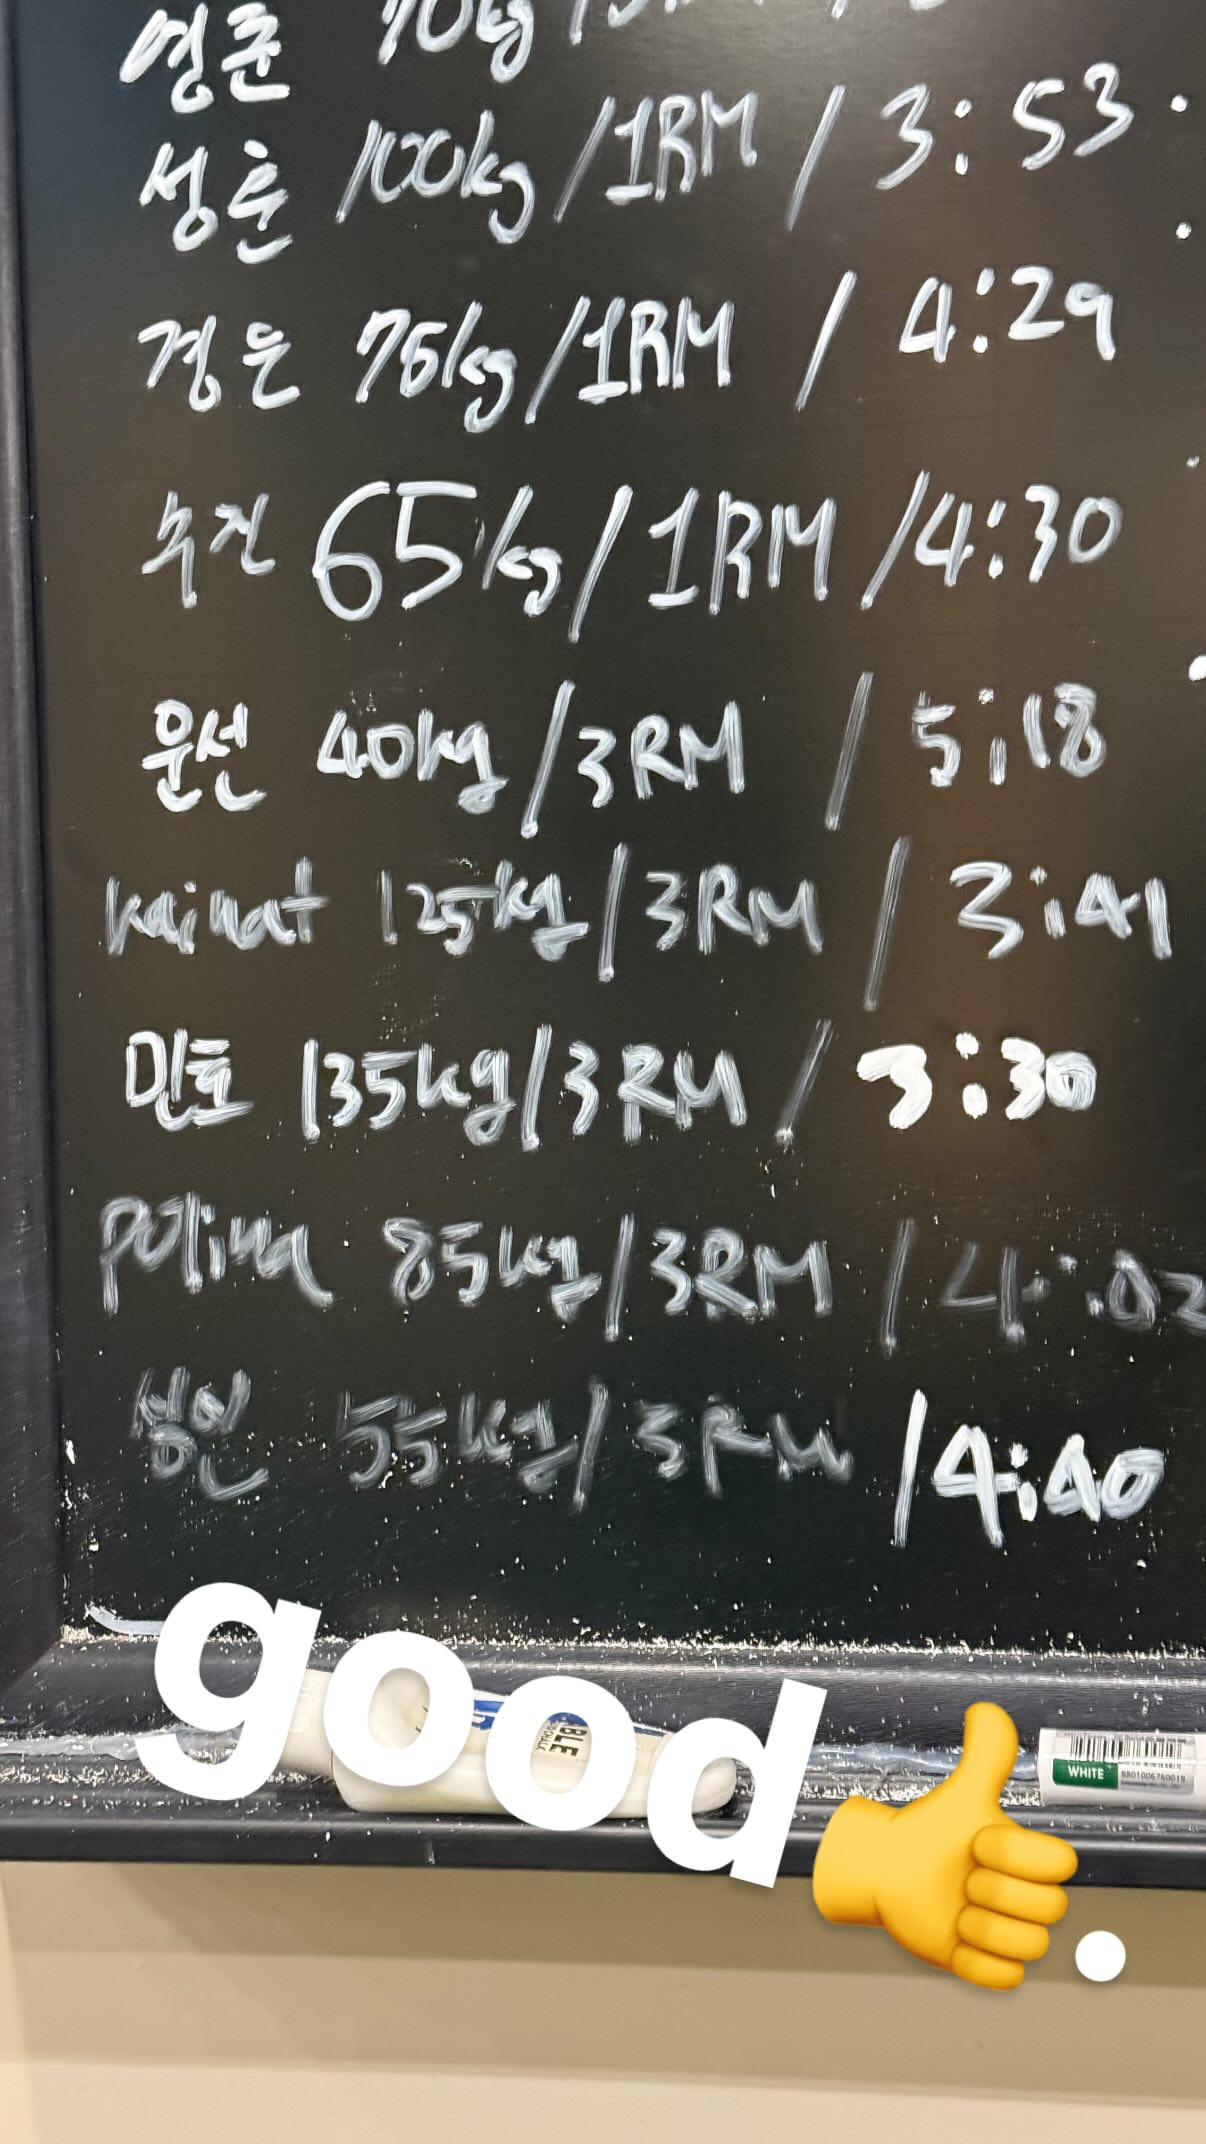 영준 70kg /
성훈 100kg /1RM / 3:53
경은 75kg /1RM / 4:29
수진 65kg / 1RM /4:30
윤선 40kg /3RM / 5:18
kainat 125kg /3RM / 3:41
민호 135kg /3RM / 3:30
polina 85kg /3RM / 4:02
55kg / 3RM /4:40
good👍.
BLE
CHALK
WHITE
8801006760019